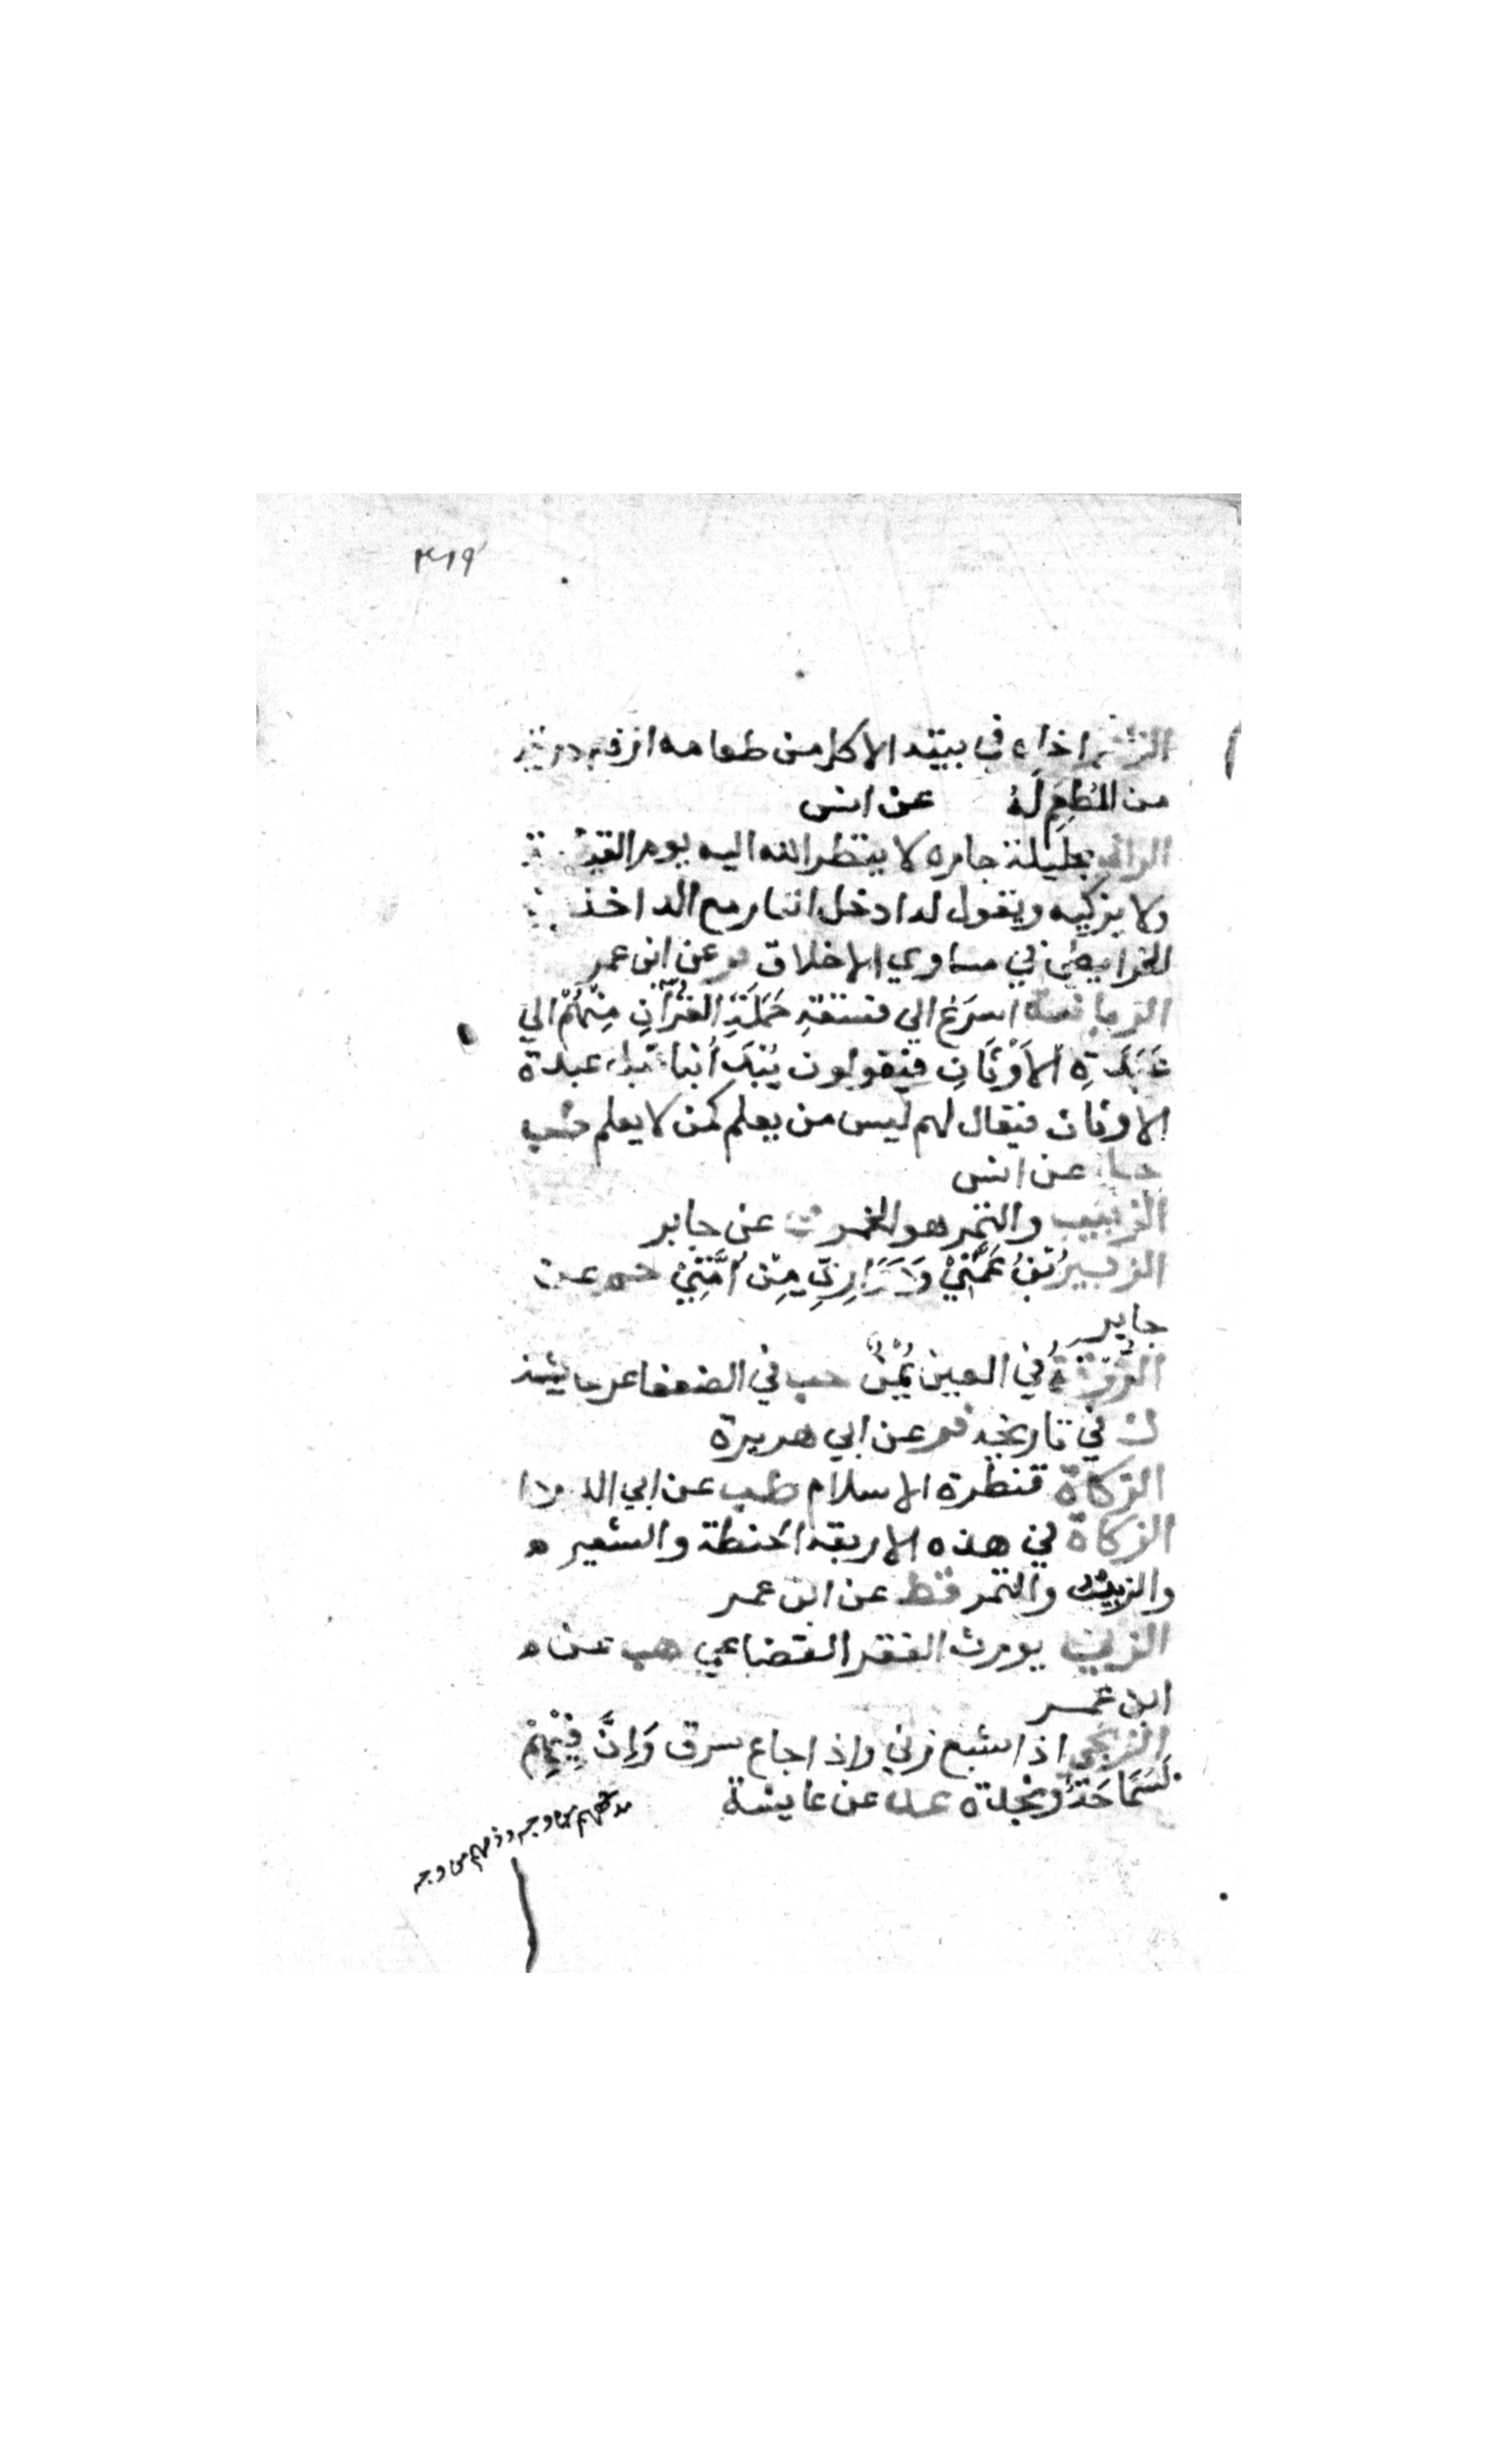 ٣١٩
الزائر اخاه في بيته الاكل من طعامه ارفع درجة
من المُطعِم لَهُ عن انس
الزاني بحليلة جاره لا ينظر الله اليه يوم القيمة
ولا يزكيه ويقول له ادخل النار مع الداخلين
الخرايطي في مساوي الاخلاق فر عن ابن عمر
الزبانية اسرَعُ الي فسقةِ حَمَلَةِ القُرآنِ مِنْهُمْ الي
عَبَدَةِ الأَوْثَانِ فيقولون يُبْدَأُ بنا قبل عبدة
الاوثان فيقال لهم ليس من يعلم كمن لا يعلم طب
حل عن انس
الزبيب والتمر هو الخمر ن عن جابر
الزبير ابْنُ عَمَّتِيْ وَحَوَارِيِّ مِنْ اُمَّتِيْ حم عن
جابر
الزُرْقَةُ في العين يُمْنٌ حب في الضعفا عن عايشة
ك في تاريخه فر عن ابي هريرة
الزكاة قنطرة الاسلام طب عن ابي الدردا
الزكاة في هذه الاربعة الحنطة والشعير
والزبيب والتمر قط عن ابن عمر
الزنا يورث الفقر القضاعي هب عن
ابن عمر
الزنجي اذا شبع زني واذا جاع سرق وَاِنَّ فِيْهِمْ
لَسَمَاحَةً ونجدة عد عن عايشة
مدحهم من وجه وذمهم من وجه